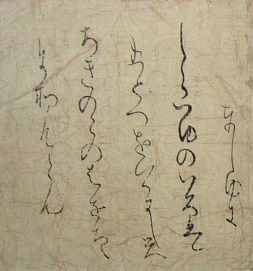 としゆき
しらつゆのいろは
ひとつをいかにして
あきのこのはをちゝ
にそむらん